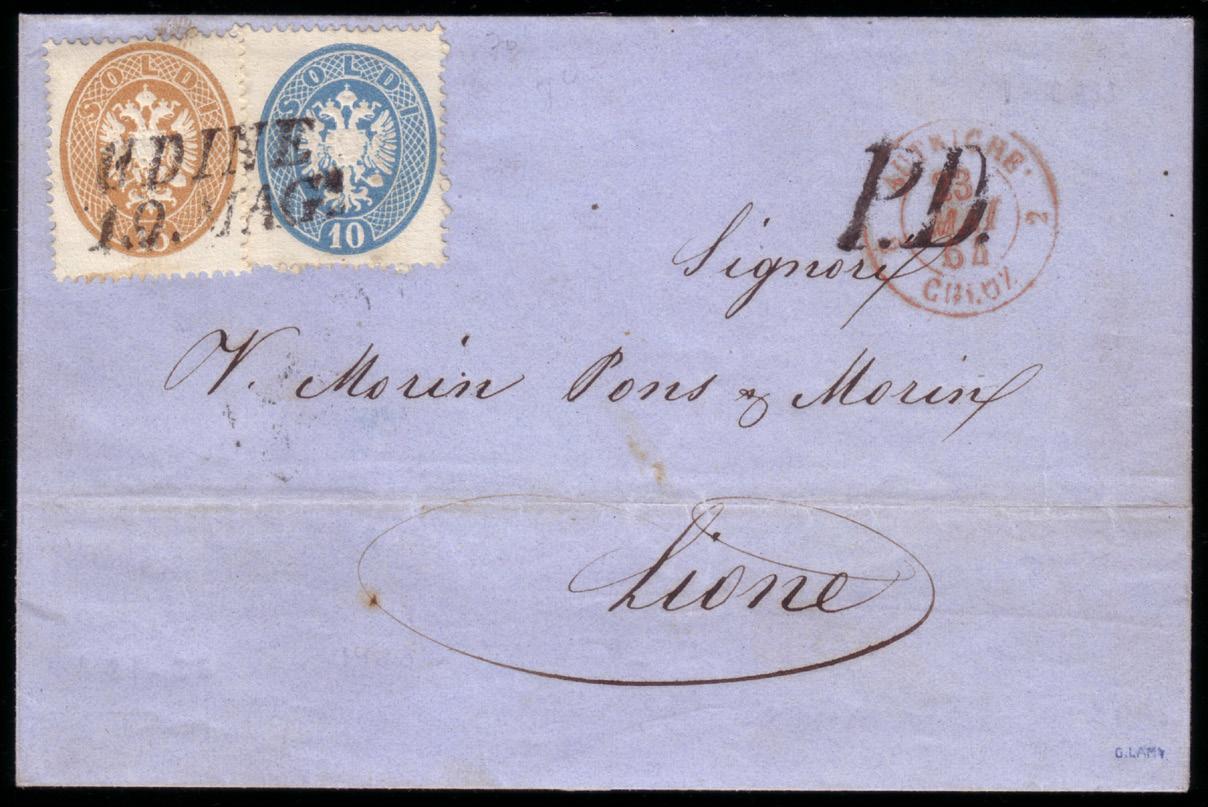 SOLDI
SOLDI
10
UDINE
19. MAG.
P.D.
AUTRICHE.
2
23
MAI
64
CULOZ
2
Signori
V. Morin Pons & Morin
Lione
G. LAMY